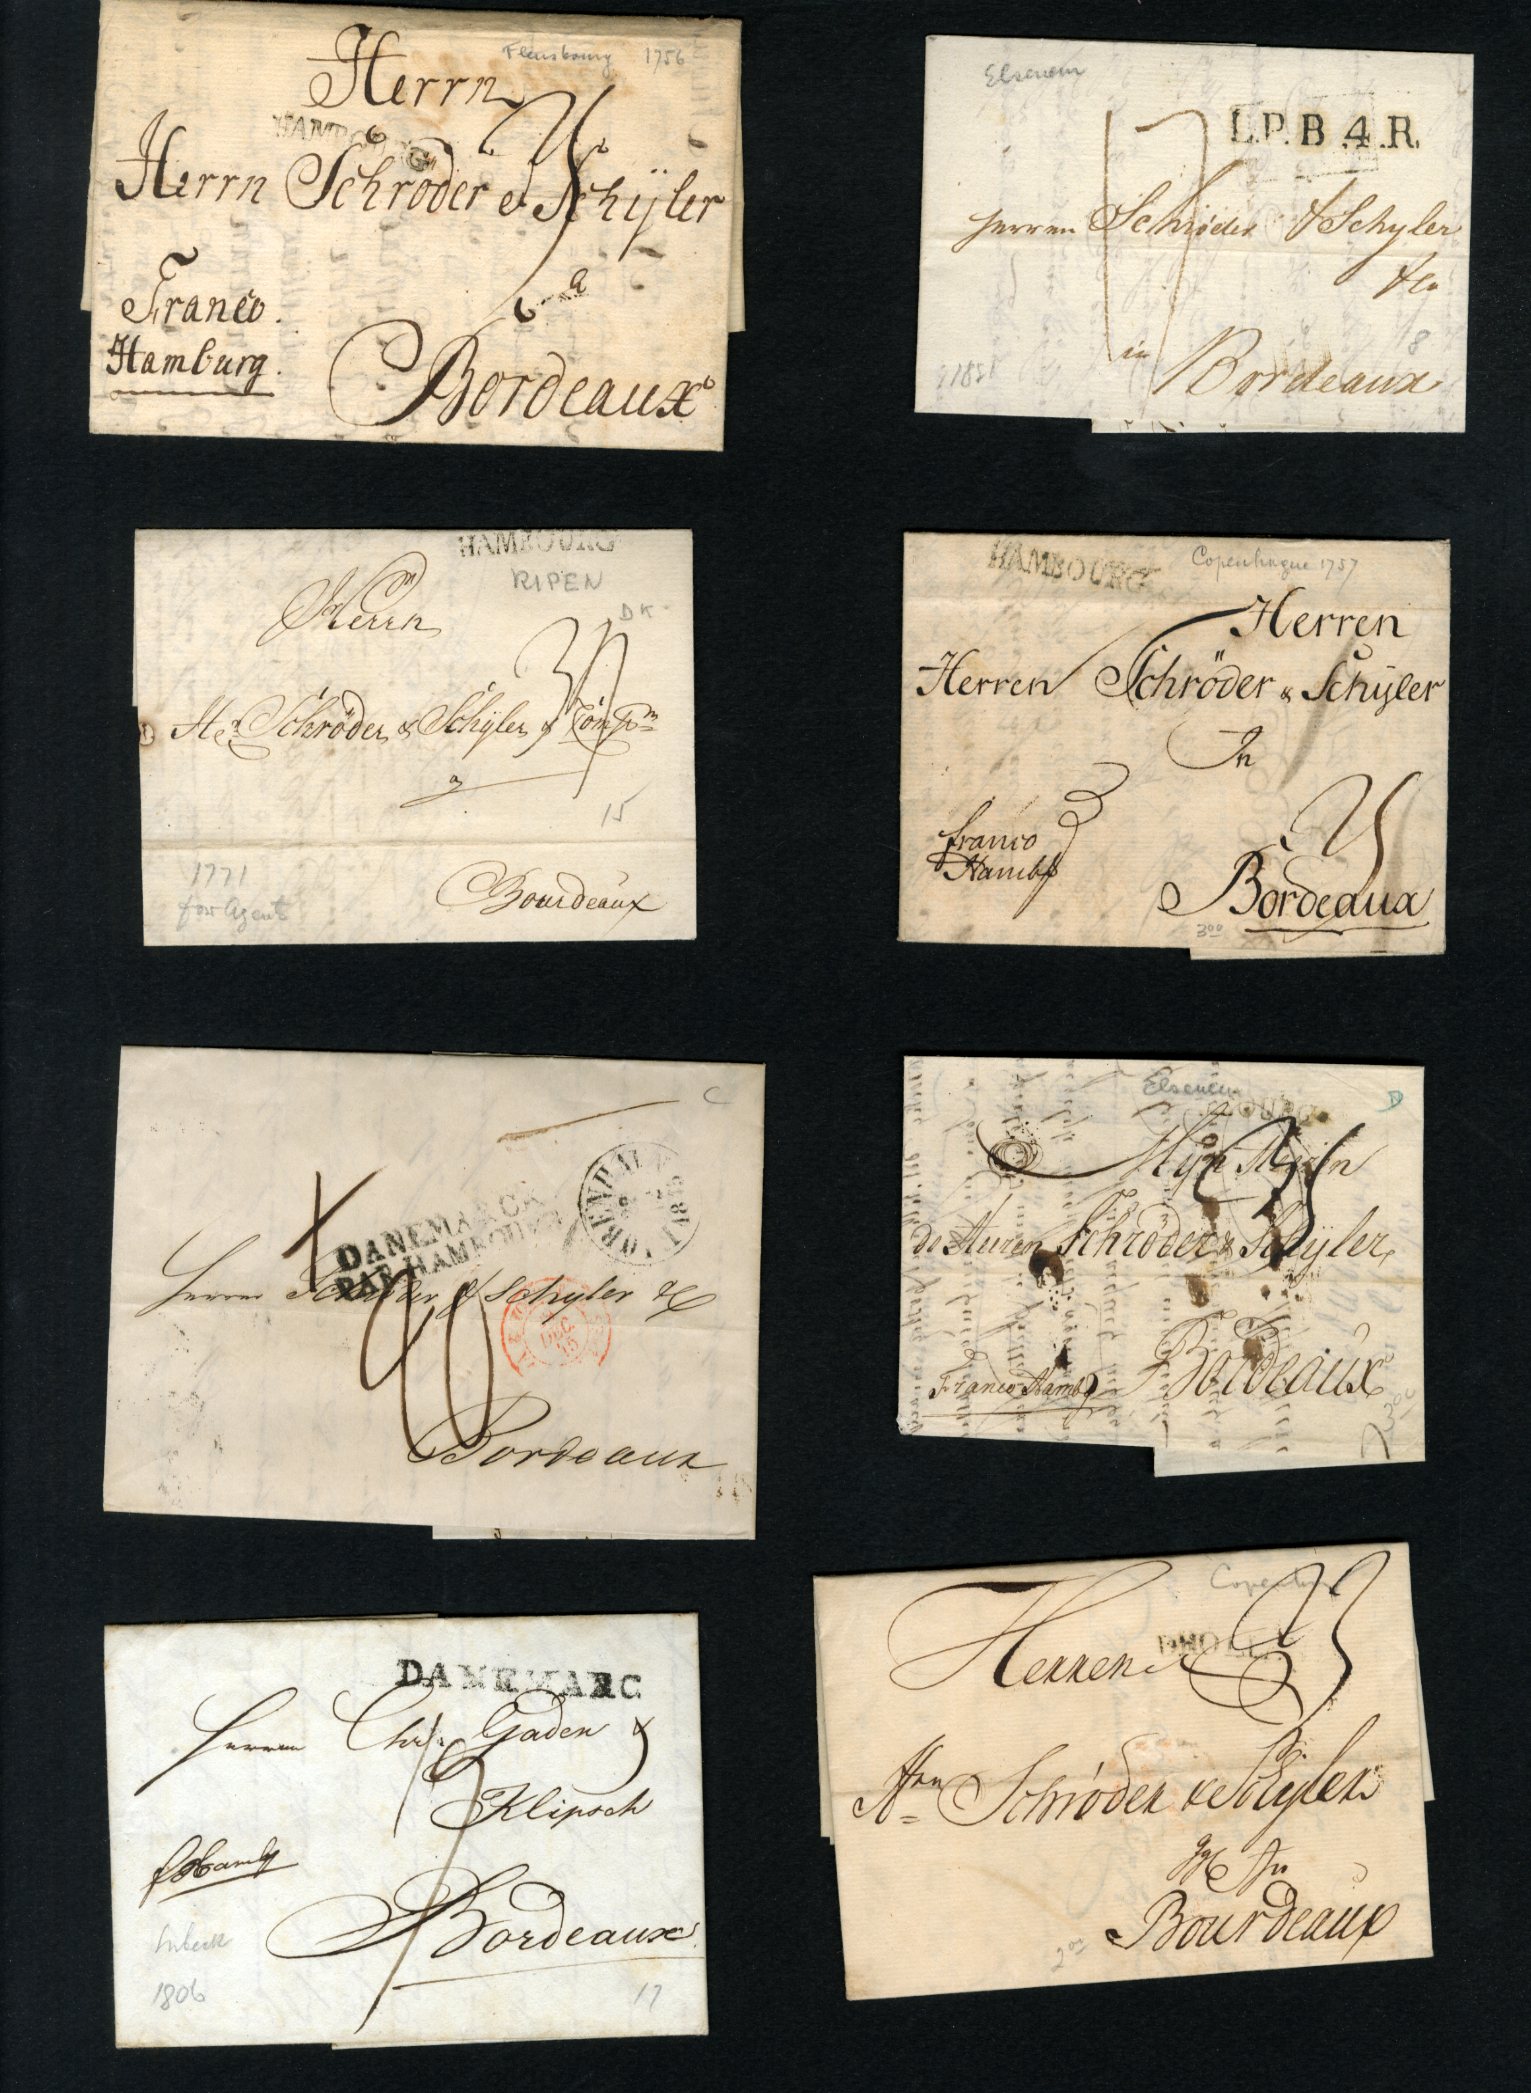 Flensbourg 1756
Herrn
HAMBOURG
Herrn Schröder & Schÿler
a
Franco.
Hamburg.
Bordeaux
Elseneur
L.P.B.4.R.
17
Herren Schröder & Schyler
& Co
in Bordeaux
8
HAMBOURG
RIPEN
DK
Herrn
Schröder & Schÿler &
a
15
1771
for Agent
Bourdeaux
HAMBOURG
Copenhague 1757
Herren
Herren Schröder & Schÿler
In
franco
Hambg
Bordeaux
300
C
DANEMARCK
PAR HAMBOURG
Herren Schröder & Schyler & C
40
DEC.
Bordeaux
Elseneur
D
Myn Heeren
de Heeren Schröder & Schÿler
Franco Hambg
Bordeaux
DANEMARC
Herren Chr. Gaden &
Klipsch
Hamby
Bordeaux
Lubeck
1806
17
Copenh
Herren
Hrn Schröder & Schÿler
In
Bourdeaux
200